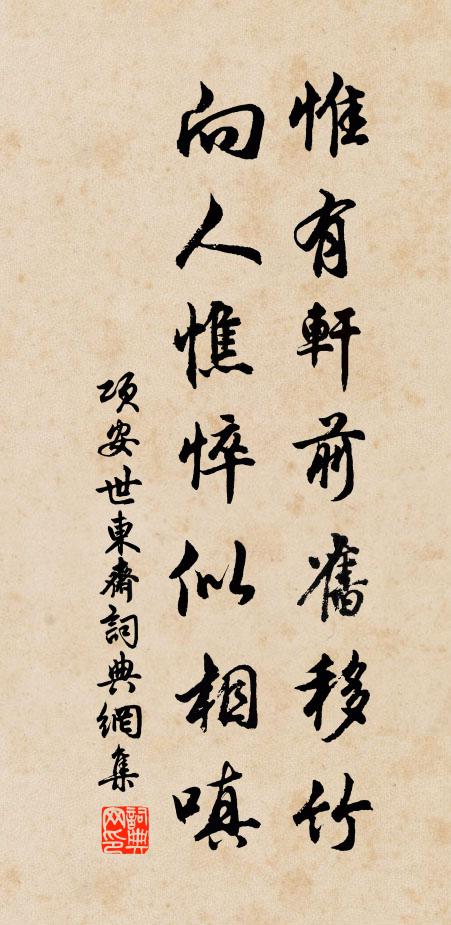 惟有軒前舊移竹
向人憔悴似相嗔
項安世東齋詞典網集
詞典网印